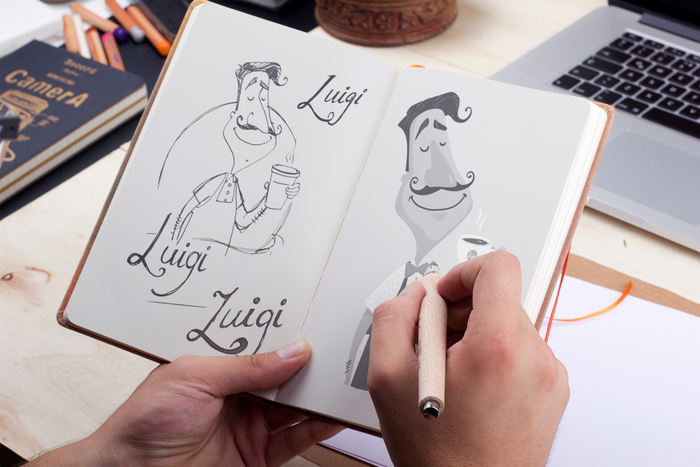 Record
CamerA
Luigi
Luigi
Luigi